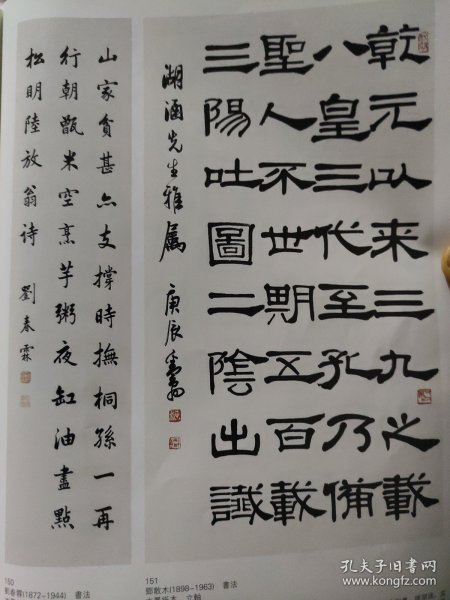 乾元以来三九之載
八皇三代至孔乃備
聖人不世期五百載
三陽吐圖二陰出讖
湖先生雅属 庚辰 翁
山家貧甚亦支撐時撫桐孫一再
行朝甑米空烹芋粥夜缸油盡點
松明陸放翁诗 劉春霖
150
劉春霖(1872-1944) 書法
151
鄧散木(1898-1963) 書法
立軸
孔夫子旧书网